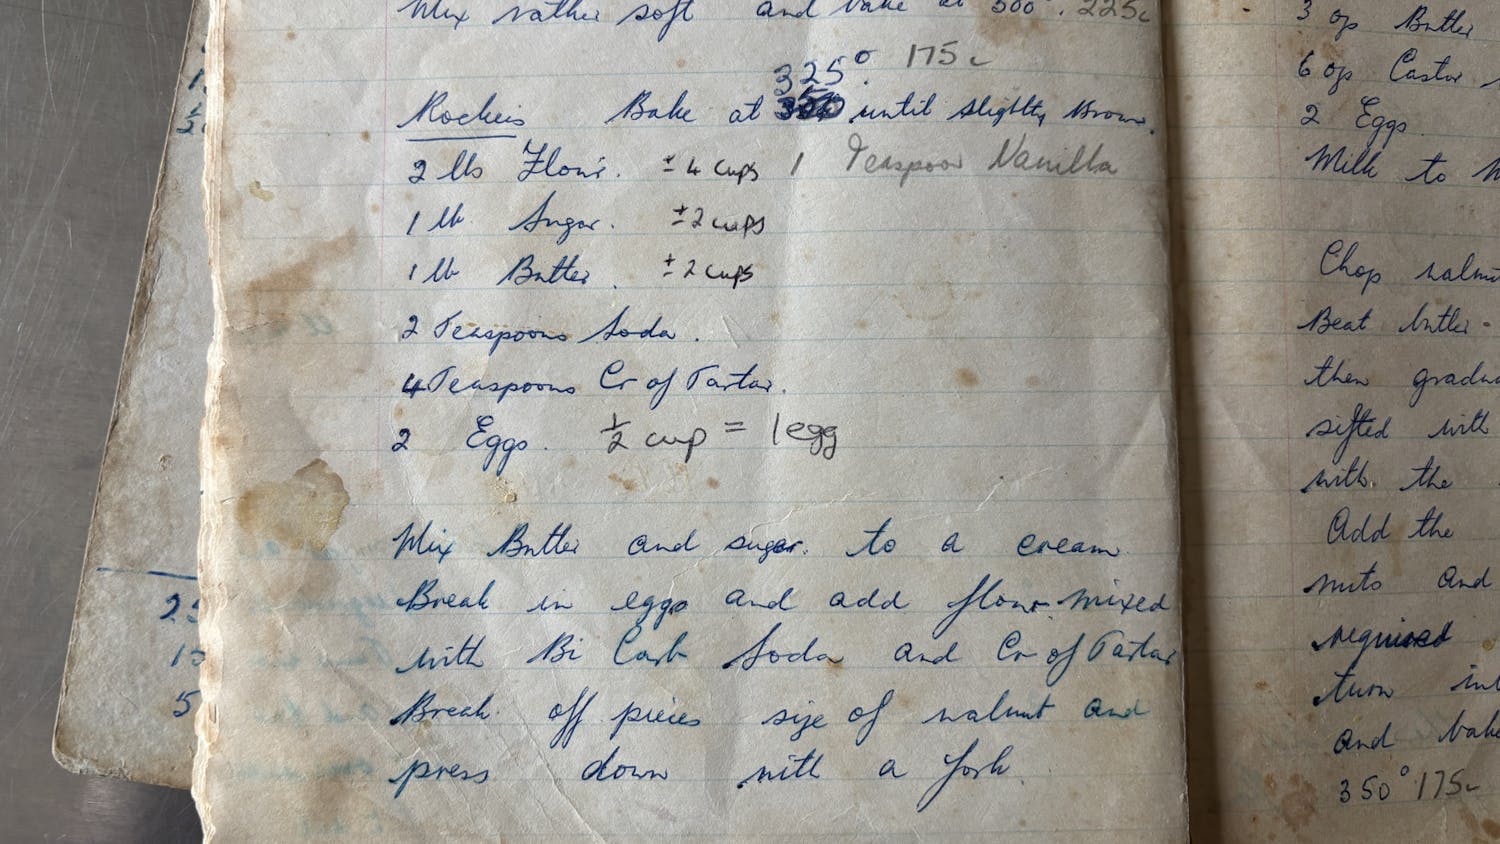 Mix rather soft and bake at 500°. 225c
325° 175c
Rockies Bake at until slightly Brown.
2 lbs Flour. ± 4 cups 1 Teaspoon Vanilla
1 lb Sugar. ± 2 cups
1 lb Butter. ± 2 cups
2 Teaspoons Soda.
4 Teaspoons Cr of Tartar.
2 Eggs. ½ cup = 1 egg
Mix Butter and sugar. to a cream
Break in eggs and add flour mixed
with Bi Carb Soda and Cr of Tartar
Break off pieces size of walnut and
press down with a fork.
3 oz Butter
6 oz Castor
2 Eggs
Milk to
Chop
Beat butter
then
sifted with
with the
Add the
nuts and
required
turn
and
350° 175c
25
5